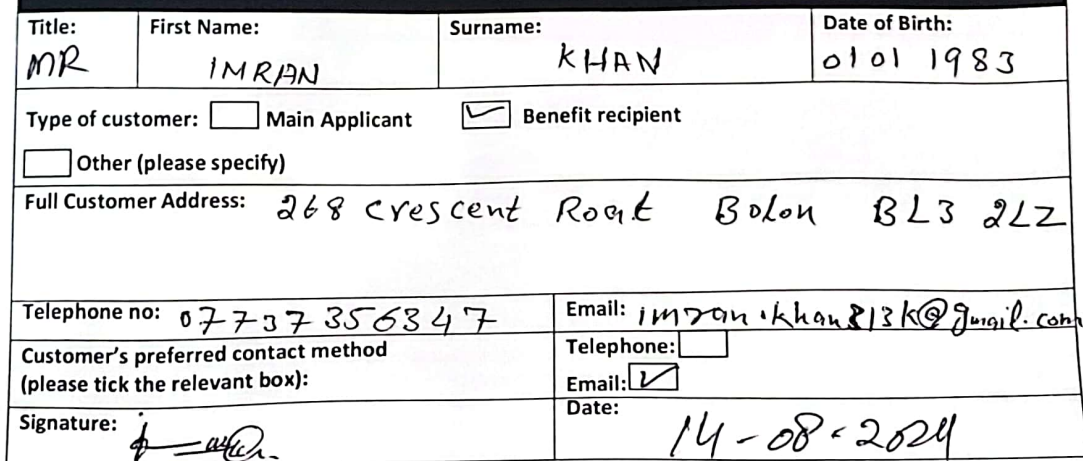 Title: First Name: Surname: Date of Birth:
MR IMRAN KHAN 01 01 1983
Type of customer: Main Applicant Benefit recipient
Other (please specify)
Full Customer Address: 268 crescent Roat Bolon BL3 2LZ
Telephone no: 07737356347 Email: imran.khan813k@gmail.com
Customer's preferred contact method Telephone:
(please tick the relevant box): Email:
Signature: Date: 14-08-2024